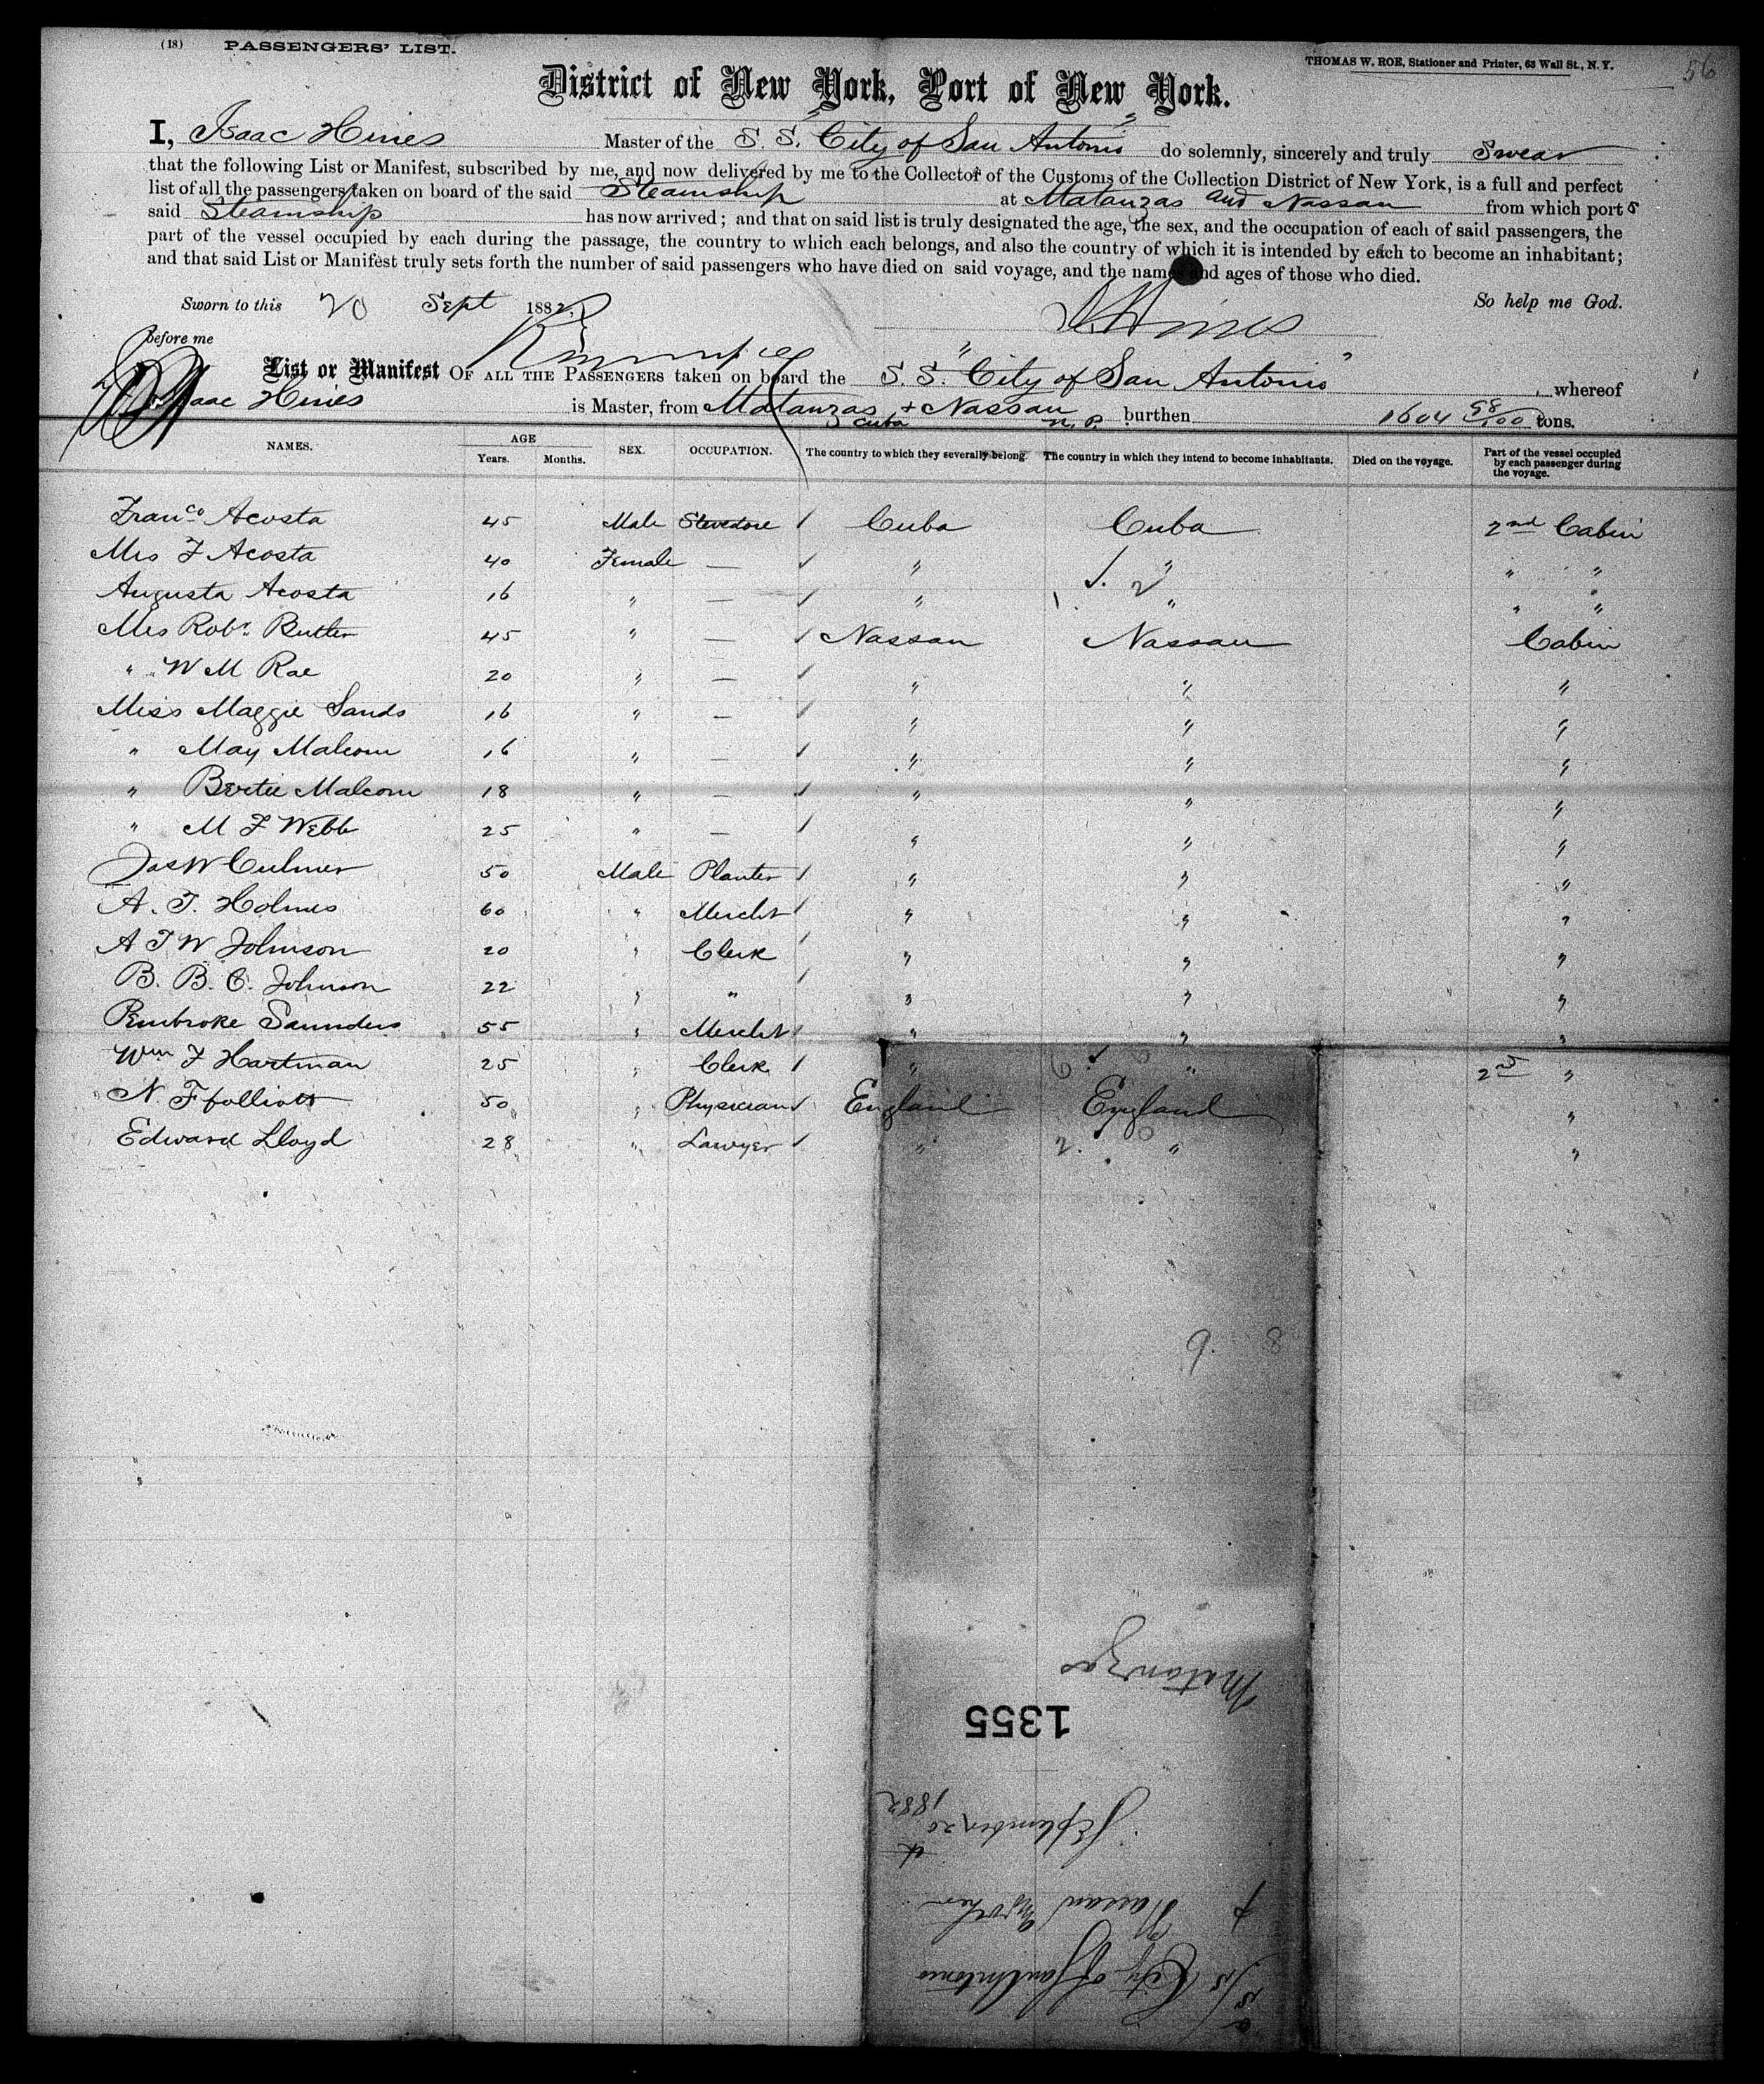 (18) PASSENGERS' LIST.
THOMAS W. ROE, Stationer and Printer, 63 Wall St., N. Y.
56
District of New York, Port of New York.
I, Isaac Hines Master of the S. S. "City of San Antonio" do solemnly, sincerely and truly Swear
that the following List or Manifest, subscribed by me, and now delivered by me to the Collector of the Customs of the Collection District of New York, is a full and perfect
list of all the passengers taken on board of the said Steamship at Matanzas and Nassau from which port s
said Steamship has now arrived; and that on said list is truly designated the age, the sex, and the occupation of each of said passengers, the
part of the vessel occupied by each during the passage, the country to which each belongs, and also the country of which it is intended by each to become an inhabitant;
and that said List or Manifest truly sets forth the number of said passengers who have died on said voyage, and the names and ages of those who died.
Sworn to this 20 Sept 1882, So help me God.
I. Hines
before me
List or Manifest OF ALL THE PASSENGERS taken on board the S. S. "City of San Antonio" whereof
Isaac Hines is Master, from Matanzas + Nassau burthen 1604 98/100 tons.
Cuba N. P.
NAMES. AGE Years. Months. SEX. OCCUPATION. The country to which they severally belong. The country in which they intend to become inhabitants. Died on the voyage. Part of the vessel occupied by each passenger during the voyage.
Franco Acosta 45 Male Stevedore / Cuba Cuba 2nd Cabin
Mrs F Acosta 40 Female — / " " " "
Augusta Acosta 16 " — / " " " "
Mrs Robt. Butler 45 " — / Nassau Nassau Cabin
" W M Rae 20 " — / " " "
Miss Maggie Sands 16 " — / " " "
" May Malcom 16 " — / " " "
" Bertie Malcom 18 " — / " " "
" M F Webb 25 " — / " " "
Jas W Culmer 50 Male Planter / " " "
A. T. Holmes 60 " Mercht / " " "
A T W Johnson 20 " Clerk / " " "
B. B. C. Johnson 22 " " / " " "
Pembroke Saunders 55 " Mercht / " " "
Wm F Hartman 25 " Clerk / " " 2nd "
N. Ffolliott 50 " Physician / England England "
Edward Lloyd 28 " Lawyer / " 2. " "
9. 8
Matanzas
1355
September 20
1882
Nassau
S/S City of San Antonio